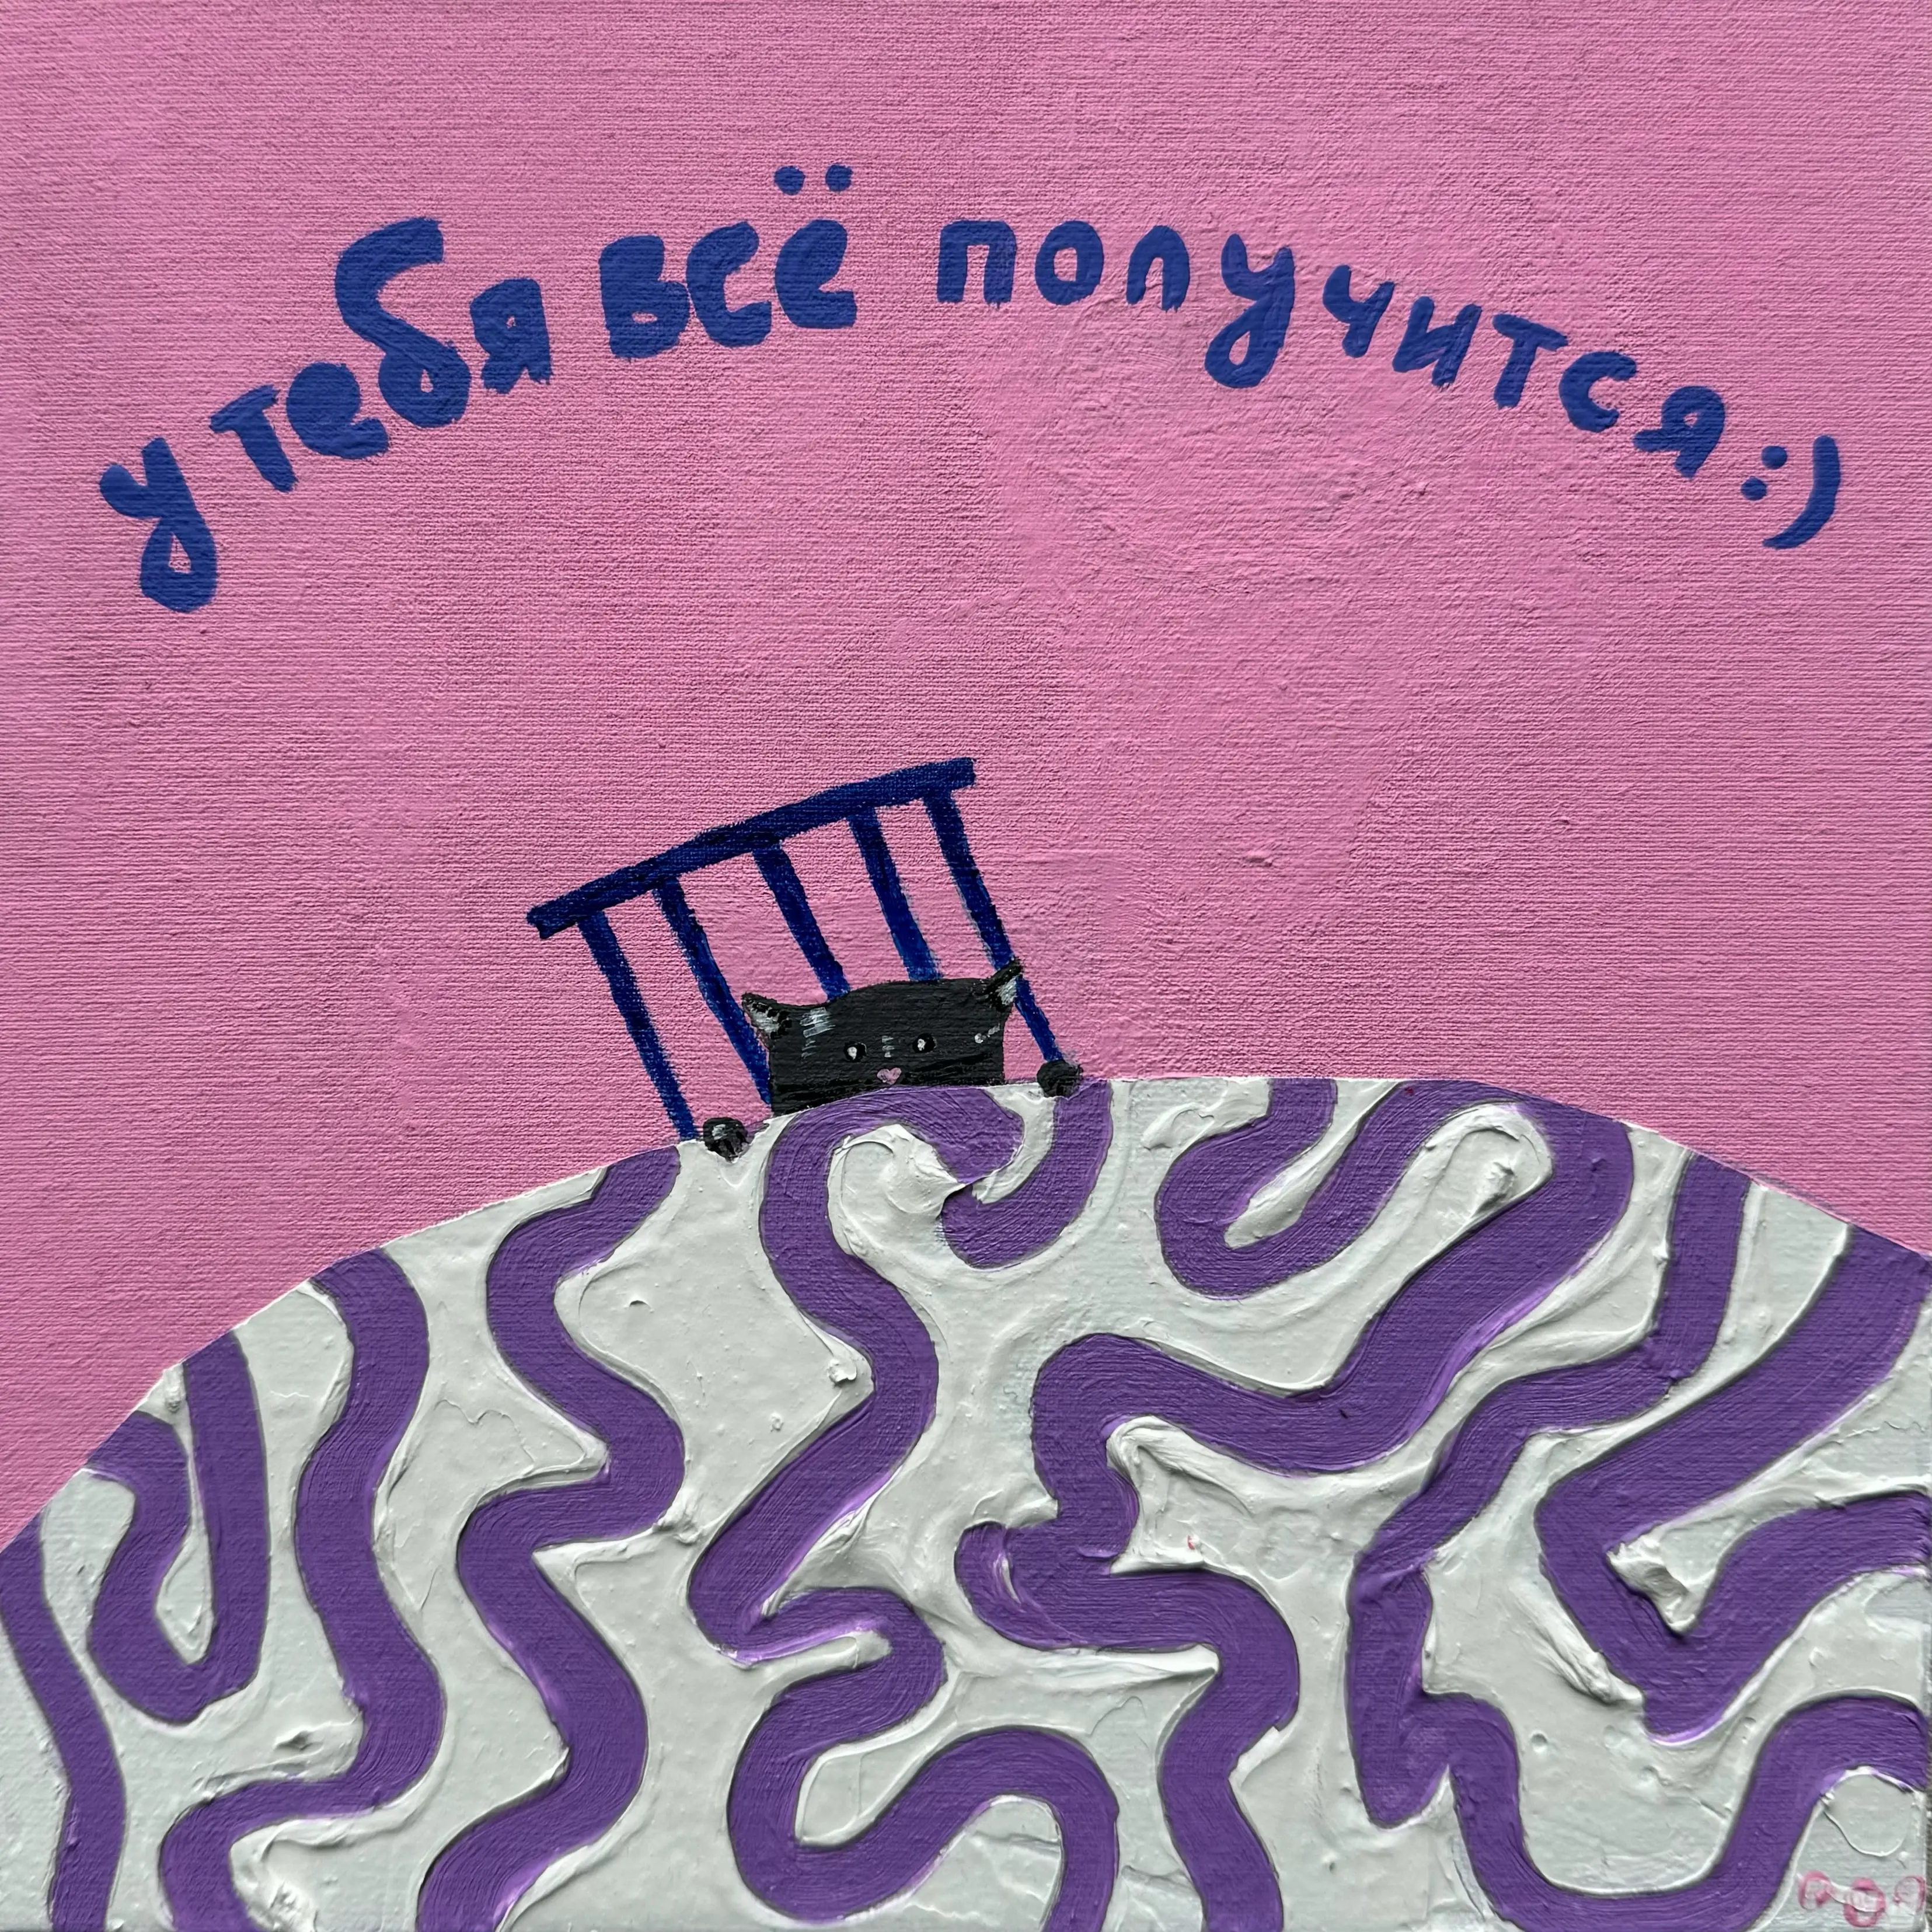 у тебя всё получится :)